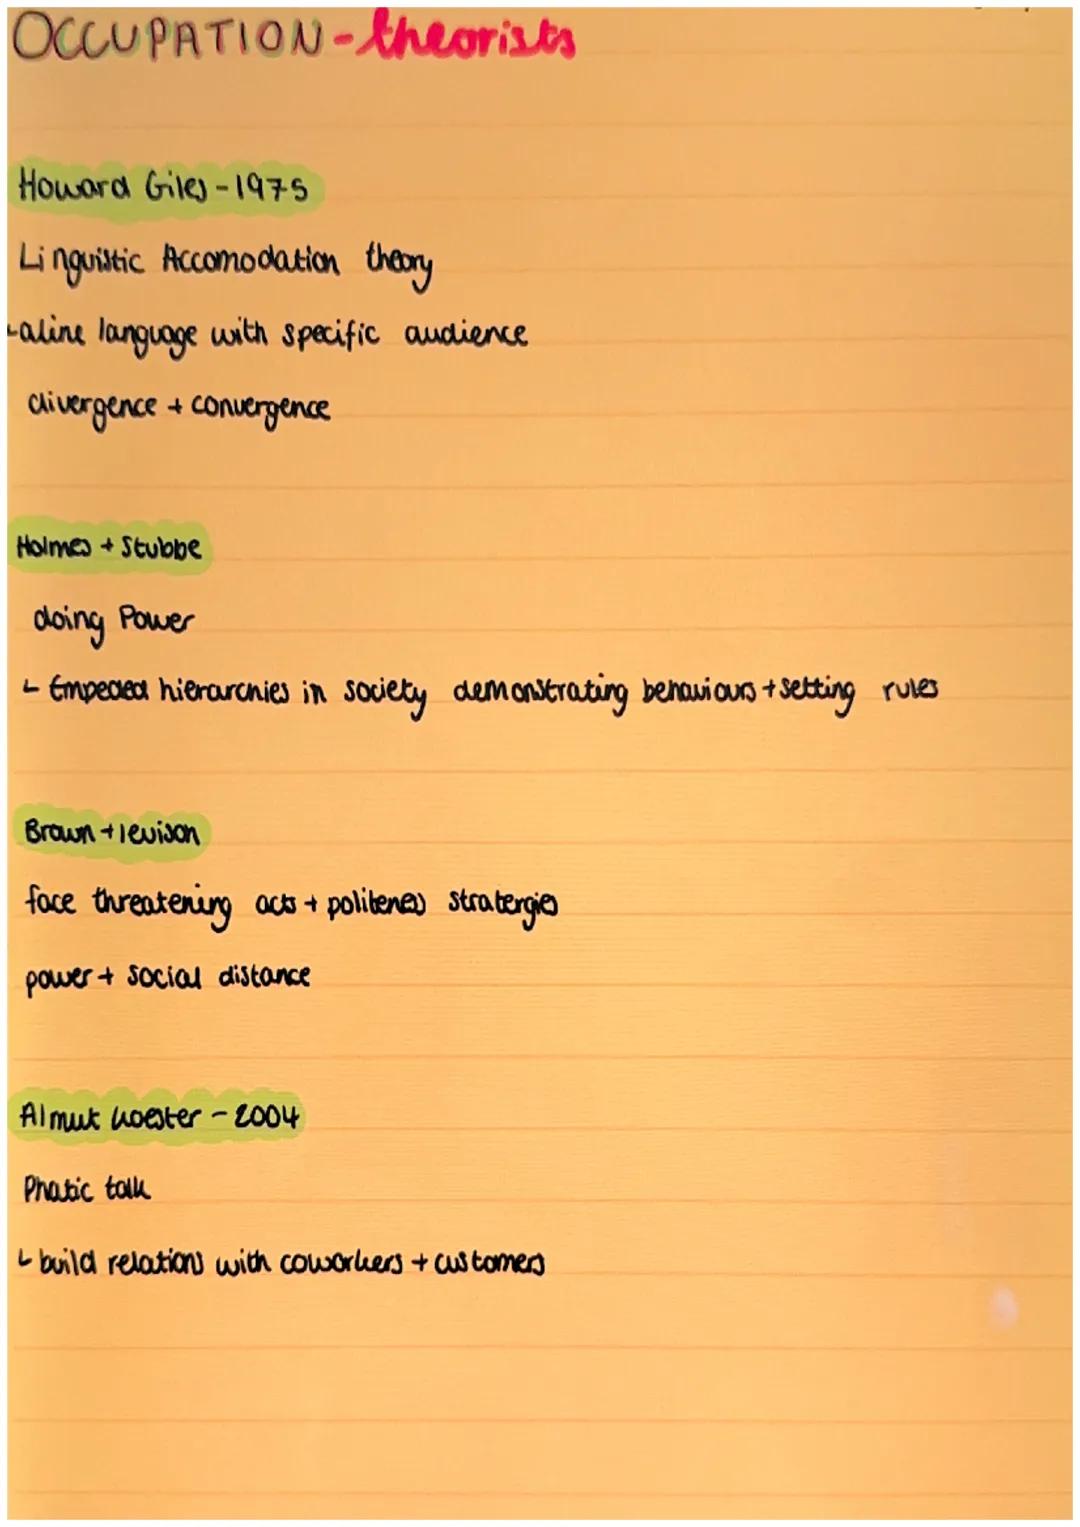 OCCUPATION - theorists
Howard Giles - 1975
Linguistic Accomodation theory
- aline language with specific audience
divergence + convergence
Holmes + Stubbe
doing Power
└ Empeded hierarchies in society demonstrating behaviours + setting rules
Brown + levison
face threatening acts + politeness stratergies
power + social distance
Almut koester - 2004
Phatic talk
└ build relations with coworkers + customers